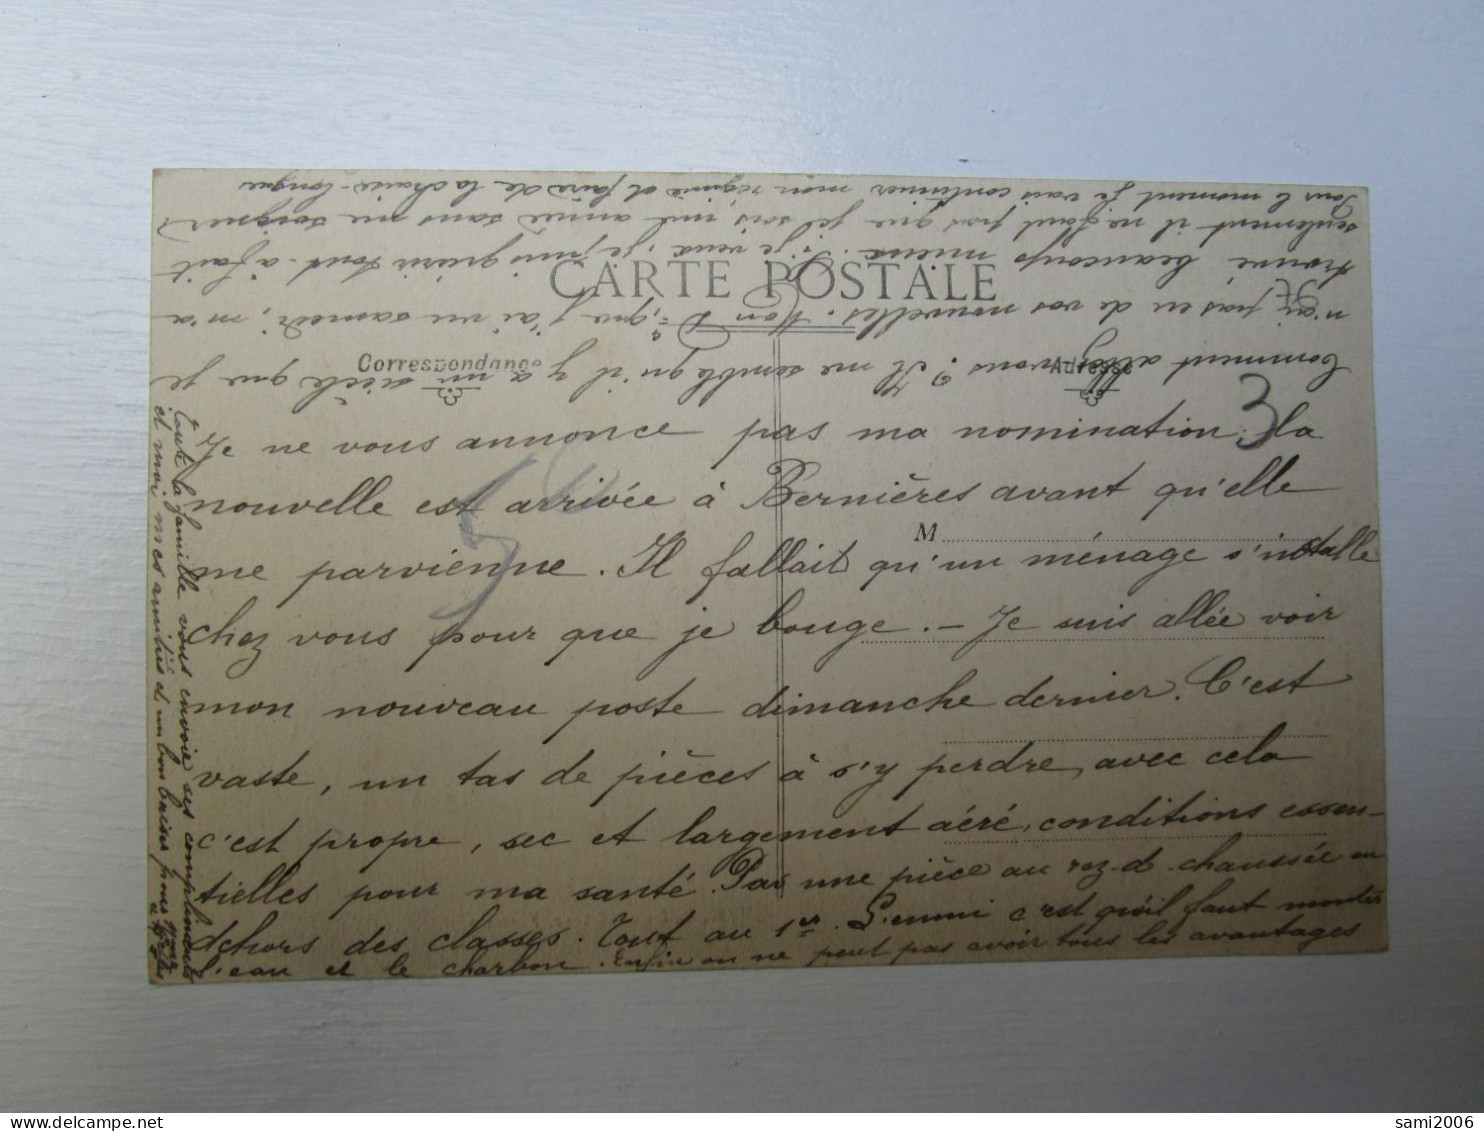 CARTE POSTALE
Correspondance
Adresse
M
3
50
Je ne vous annonce pas ma nomination ; la
nouvelle est arrivée à Bernières avant qu'elle
me parvienne. Il fallait qu'un ménage s'installe
chez vous pour que je bouge. - Je suis allée voir
mon nouveau poste dimanche dernier. C'est
vaste, un tas de pièces à s'y perdre, avec cela
c'est propre, sec et largement aéré, conditions essen-
tielles pour ma santé. Pas une pièce au rez-d-chaussée en
dehors des classes. Tout au 1er. L'ennui c'est qu'il faut monter
l'eau et le charbon. Enfin on ne peut pas avoir tous les avantages
Comment allez-vous ? Il me semble qu'il y a un siècle que je
n'ai pas eu de vos nouvelles. Mon Dr, que j'ai vu samedi, m'a
trouvé beaucoup mieux. Si je veux, je puis guérir tout-à-fait
seulement il ne faut pas que je sois une année sans me soigner
Pour le moment je vais continuer mon régime et faire de la chaise-longue
Toute la famille vous envoie ses compliments
et moi mes amitiés et un bon baiser pour vous
sami2006